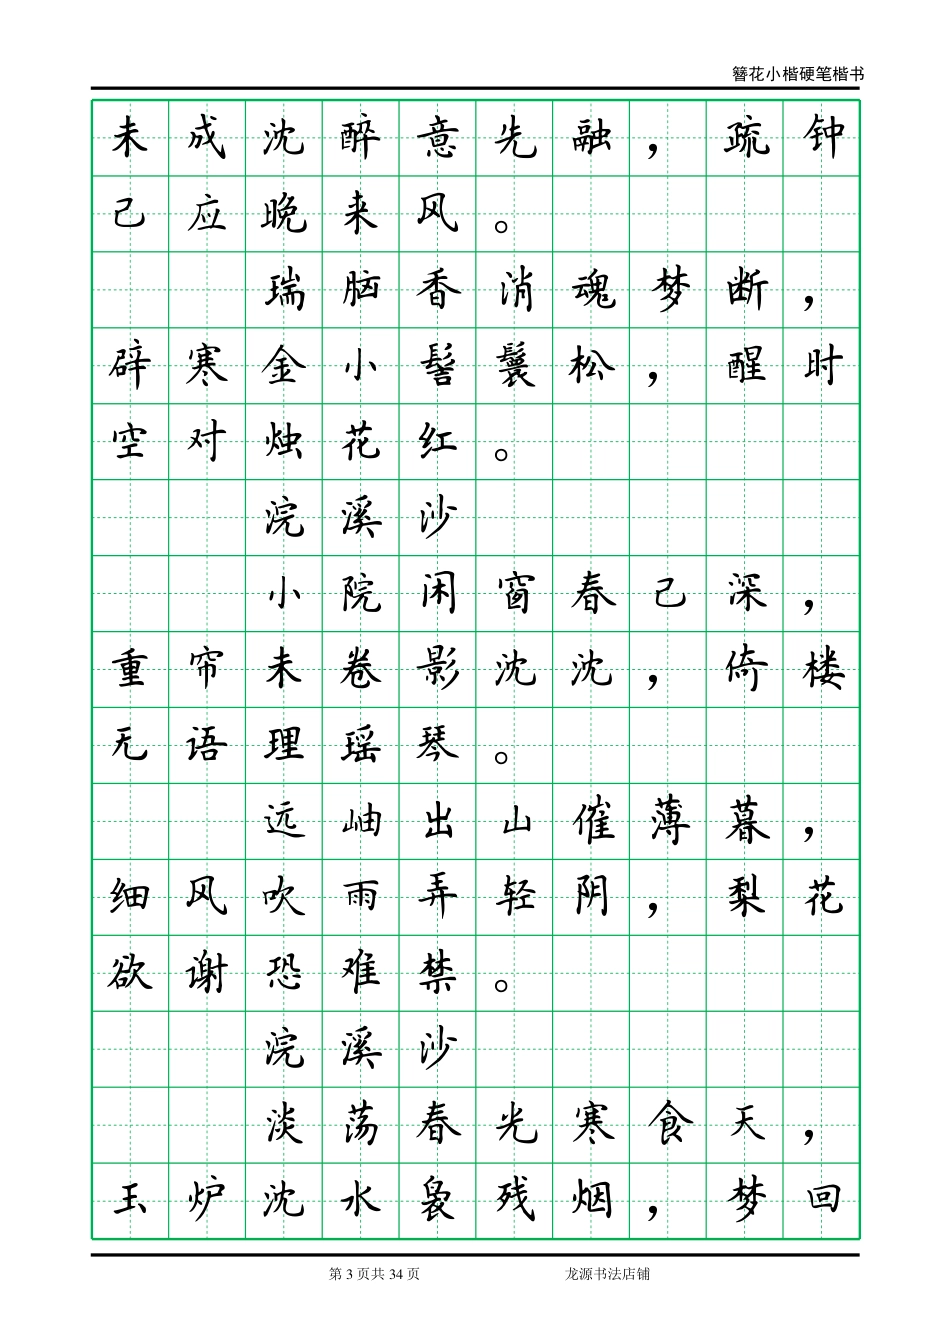 簪花小楷硬笔楷书
未成沈醉意先融，疏钟
已应晚来风。
瑞脑香消魂梦断，
辟寒金小髻鬟松，醒时
空对烛花红。
浣溪沙
小院闲窗春已深，
重帘未卷影沈沈，倚楼
无语理瑶琴。
远岫出山催薄暮，
细风吹雨弄轻阴，梨花
欲谢恐难禁。
浣溪沙
淡荡春光寒食天，
玉炉沈水袅残烟，梦回
第 3 页共 34 页 龙源书法店铺